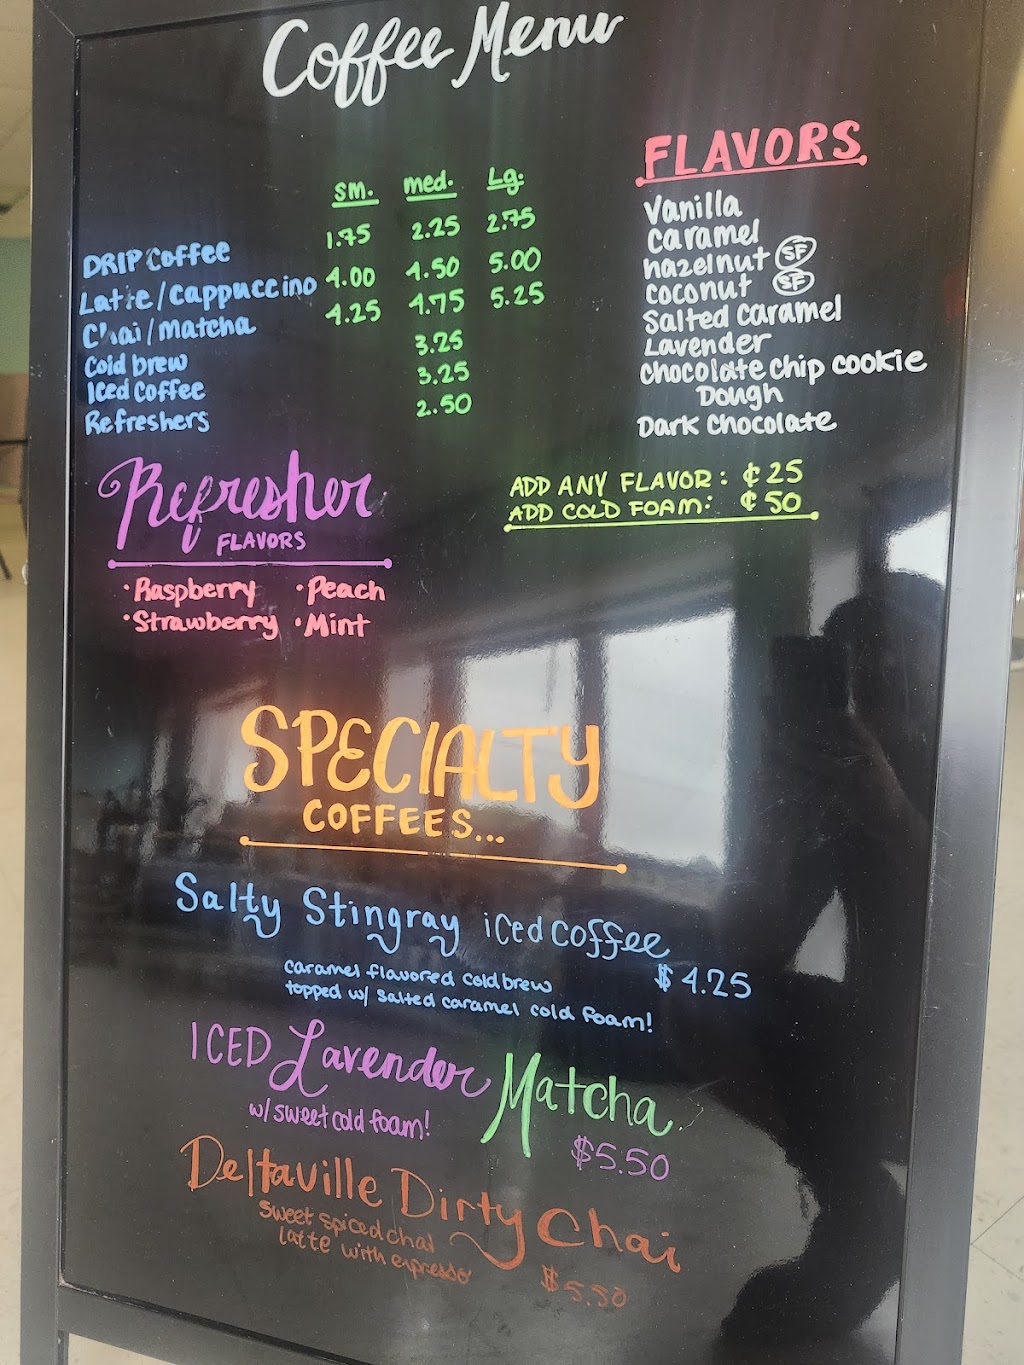 Coffee Menu
sm. med. Lg.
DRIP Coffee 1.75 2.25 2.75
Latte/Cappuccino 4.00 4.50 5.00
Chai/Matcha 4.25 4.75 5.25
Cold brew 3.25
Iced Coffee 3.25
Refreshers 2.50
FLAVORS
Vanilla
Caramel
hazelnut SF
coconut SF
Salted Caramel
Lavender
Chocolate chip cookie
Dough
Dark Chocolate
ADD ANY FLAVOR: ¢25
ADD COLD FOAM: ¢50
Refresher
FLAVORS
•Raspberry •Peach
•Strawberry •Mint
SPECIALTY
COFFEES...
Salty Stingray iced coffee
$4.25
caramel flavored cold brew
topped w/ salted caramel cold foam!
ICED Lavender Matcha
w/ sweet cold foam!
$5.50
Deltaville Dirty Chai
sweet spiced chai
latte with espresso
$5.50